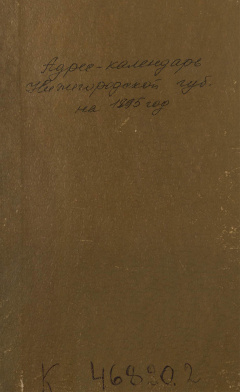 Адрес-календарь
Нижегородской губ.
на 1895 год
К 46820.2